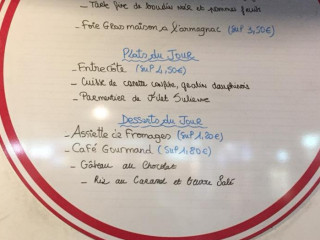 - Tarte fine de boudin noir et pommes fruits
- Foie Gras maison à l'armagnac (SuP 3,50€)
Plats du Jour
- Entrecôte (SuP 4,50€)
- Cuisse de canette confite, gratin dauphinois
- Parmentier de
Desserts du Jour
- Assiette de Fromages (SuP 1,20€)
- Café Gourmand (SuP 1,80€)
- Gâteau au Chocolat
- Riz au Caramel et Beurre Salé